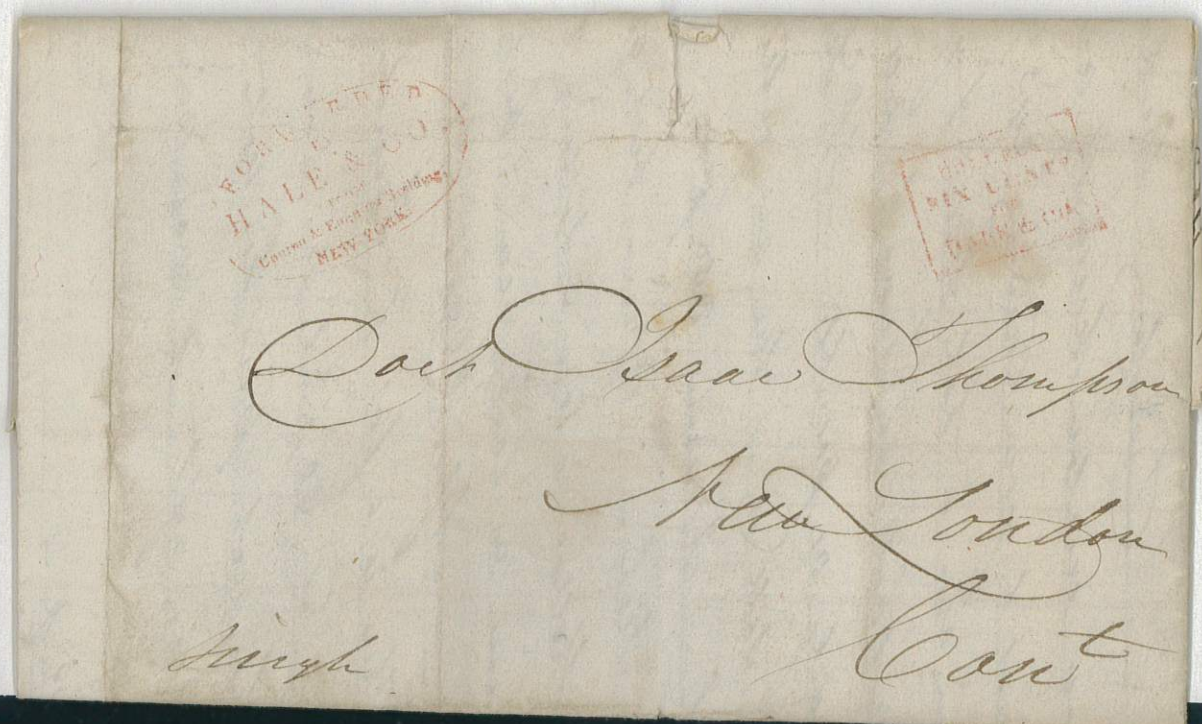 FORWARDED
BY
HALE & CO
FROM
Courier & Enquirer Building,
NEW YORK
COLLECT
SIX CENTS
FOR
HALE & CO.
Doct Isaac Thompson
New London
Cont
Single